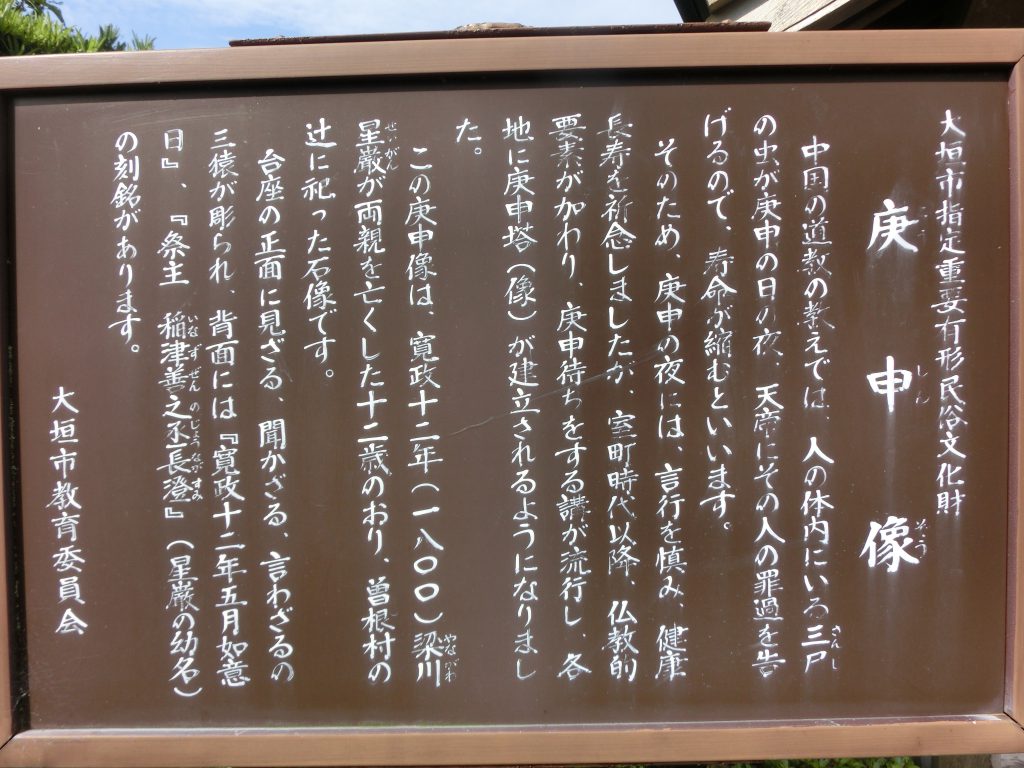 大垣市指定重要有形民俗文化財
庚申像
中国の道教の教えでは、人の体内にいる三尸
の虫が庚申の日の夜、天帝にその人の罪過を告
げるので、寿命が縮むといいます。
そのため、庚申の夜には、言行を慎み、健康
長寿を祈念しましたが、室町時代以降、仏教的
要素が加わり、庚申待ちをする講が流行し、各
地に庚申塔（像）が建立されるようになりまし
た。
この庚申像は、寛政十二年（一八〇〇）梁川
星巌が両親を亡くした十二歳のおり、曽根村の
辻に祀った石像です。
台座の正面に見ざる、聞かざる、言わざるの
三猿が彫られ、背面には『寛政十二年五月如意
日』、『祭主　稲津善之丞長澄』（星巌の幼名）
の刻銘があります。
大垣市教育委員会